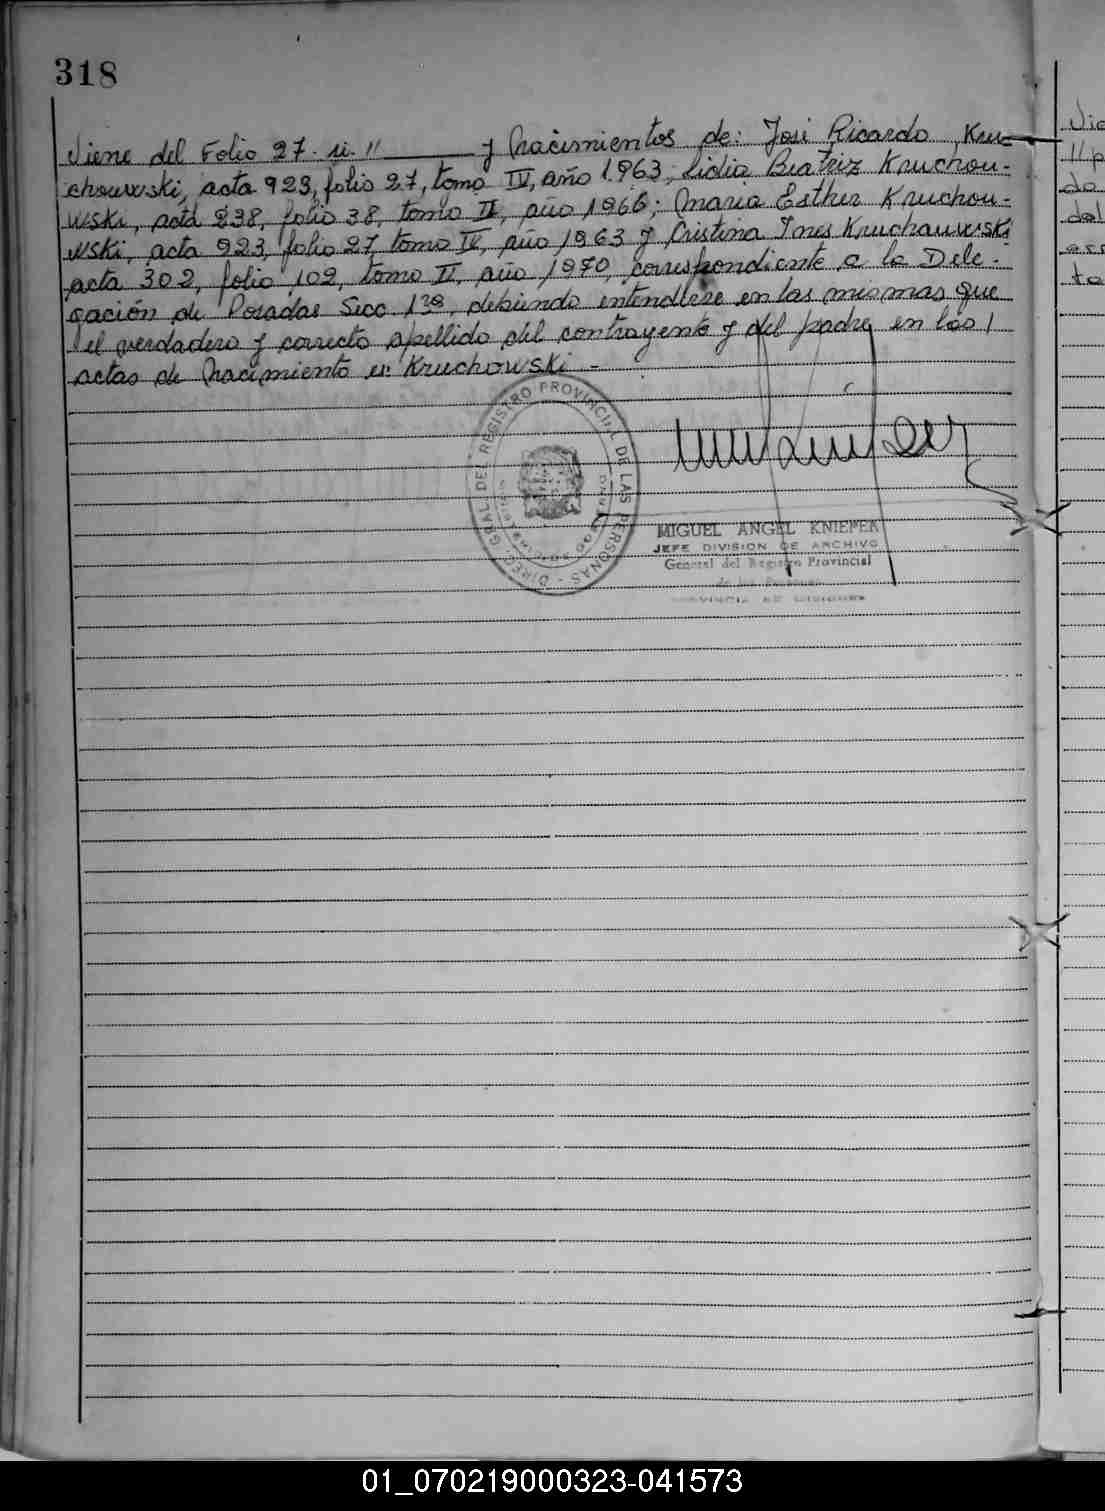 318
Viene del Folio 27. ii. // y Nacimientos de: José Ricardo Kru-
chouwski, acta 923, folio 27, tomo IV, año 1963; Lidia Beatriz Kruchou-
wski, acta 238, folio 38, tomo II, año 1966; María Esther Kruchou-
wski, acta 923, folio 27, tomo IV, año 1963 y Cristina Ines Kruchauwski
acta 302, folio 102, tomo II, año 1970, correspondiente a la Dele-
gación de Posadas Secc. 1ra, debiendo entenderse en las mismas que
el verdadero y correcto apellido del contrayente y del padre en las
actas de Nacimiento es: Kruchowski -
DIREC. GRAL. DEL REGISTRO PROVINCIAL DE LAS PERSONAS
MIGUEL ANGEL KNIEFER
JEFE DIVISION DE ARCHIVO
General del Registro Provincial
de las Personas
PROVINCIA DE MISIONES
Vie
//p
do
del
to
01_070219000323-041573